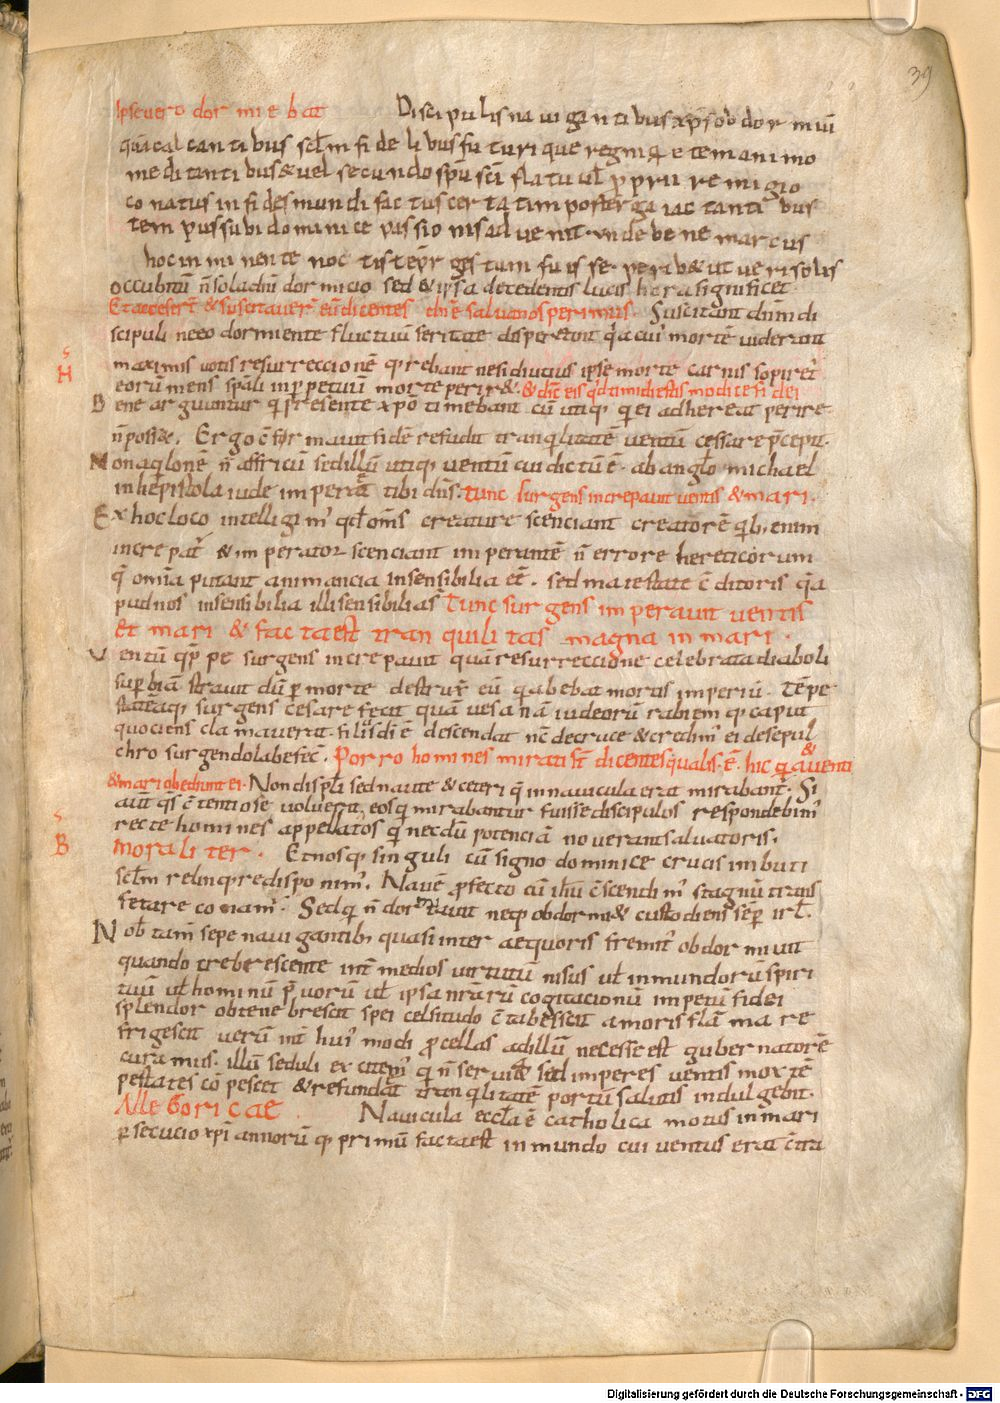 39
Ipse uero dormiebat Discipulis nauigantibus xp̄s obdormiuit
quia calcantibus sc̄lm fidelibus futurique regni q̄etem animo
meditantibus & uel secundo sp̄u sc̄i flatu ul̄ ꝓprii remigio
conatus infides mundi factus certatim post terga iactantibus
tempus subi dominice passionis aduenit. unde bene marcus
hoc in minente noctis tēpr̄ gestum fuisse perib& ut ueri solis
occubitū n̄ sola dn̄i dormicio sed & ipsa decedentis lucis hora significet.
Et accesser̄t & suscitauer̄ eū dicentes dn̄e salua nos perimus. Suscitant dn̄m di
scipuli neeo dormiente fluctuū feritate disperetunt q̄a cui' mortē uiderant
maximis uotis resurreccionē q̄rebant ne si diutius ipse morte carnis sopiret'
eorū mens sp̄ali in ꝑpetuū morte perir&. & dic̄ eis q̄d timidi estis modice fidei
Bene arguuntur q̄ p̄resente xp̄o timebant cū utiq; q̄ ei adhereat perire
n̄ poss&. Ergo c̄firmauit fidē refudit tranq̄litatē uentū cessare p̄cepit.
Non aq̄lonē n̄ affricū sed illū utiq; uentū cui dictū ē. ab anglo michael
in hepistola iude imperat tibi dn̄s. tunc surgens increpauit uentis & mari.
Ex hoc loco intelligim' qd̄ om̄s creature scenciant creatorē q̄b; enim
increpat' & imperator scenciant imperantē n̄ errore hereticorum
q̄ omīa putant animancia insensibilia eē. sed maiestate c̄ditoris q̄a
pud nos insensibilia illi sensibilia s̄t Tunc surgens imperauit uentis
Et mari & facta est tranquilitas magna in mari.
Uentū q̄ppe surgens increpauit quā resurreccione celebrata diaboli
suꝑbiā strauit dū ꝑ morte destrux̄ eū q̄ abebat mortis imperiū. Tēpe
statēaq; surgens cesare fecit quā uesanā iudeorū rabiem q̄ caput
quociens clamauerat. si filius di ē descendat nc̄ de cruce & credim' ei de sepul
chro surgendo labefec̄. Porro homines mirati s̄t dicentes qualis. ē. hic q̄a uenti &
& mari obediunt ei. Non discipl̄i sed naute & ceteri q̄ in nauicula erat mirabant'. Si
aut̄ q̄s c̄tentiose uoluerit, eos q̄ mirabantur fuisse discipulos respondebim'
recte homines appellatos q̄ necdū potenciā nouerant saluatoris.
moraliter. Et nos q̄ singuli cū signo dominice crucis imbuti
sc̄lm relinq̄re disponim'. Nauē ꝓfecto cū ih̄u c̄scendim' stagnū trans
fetare conam'. Sed q̄ n̄ dormitauit neq; obdormi& custodiens semꝑ isrl̄.
Nob̄ tam̄ sepe nauigantib; quasi inter aequoris fremit' obdormiuit
quando crebrescente int̄ medios uirtutū nisus ul̄ inmundorū spiri
tuū ul̄ hominū p̄uorū ul̄ ipsa nr̄arū cogitacionū impetū fidei
splendor obtenebrescit spei celsitudo c̄tabesscit amoris flāma re
frigescit uerū int̄ hui' modi ꝓcellas ad illū necesse est gubernatorē
curamus. illū seduli excitem' q̄ n̄ seruit& sed imperes uentis mox tē
pestates cōpescet & refundat tranq̄litatē portū salutis indulgebit.
Allegoricae Nauicula eccl̄a ē catholica motus in mari
ꝑsecucio xp̄iannorū q̄ primū facta est in mundo cui uentus erat c̄tra
s
H
s
B
Digitalisierung gefördert durch die Deutsche Forschungsgemeinschaft - DFG